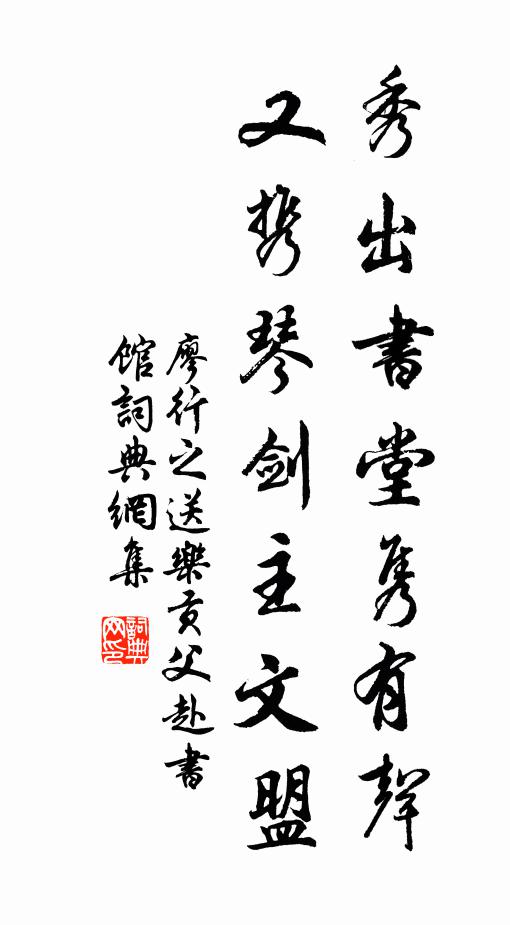 秀出書堂隽有聲
又携琴剑主文盟
廖行之送樂貢父赴書
館詞典網集
詞典网印